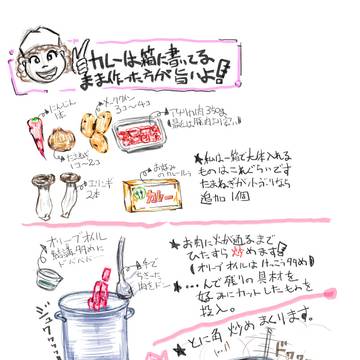 カレーは箱に書いてる
まま作った方が旨いよ!!
にんじん
1本
メークイン
3コ〜4コ
アメリカ肉 350g
玉ねぎ
1コ〜2コ
エリンギ
2本
お好み
のカレールゥ
カレー
★私は一箱で大体入れる
ものはこれぐらいです
たまねぎが小ぶりなら
追加1個
オリーブオイル
結構多めに
ドバドバ
手で
ちぎった
肉をドーン
ジュワッ
★お肉に火が通るまで
ひたすら炒めます!!
(オリーブオイルはけっこう多め)
★…んで残りの具材を
好みにカットしたもんを
投入。
★とに角炒めまくります。